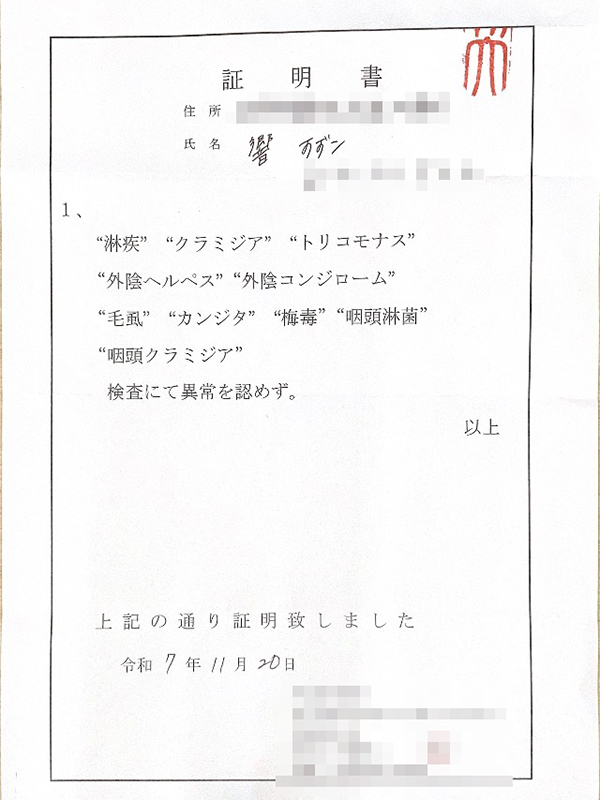 証明書
住所
氏名 響 すずン
1、
“淋疾” “クラミジア” “トリコモナス”
“外陰ヘルペス” “外陰コンジローム”
“毛虱” “カンジタ” “梅毒” “咽頭淋菌”
“咽頭クラミジア”
検査にて異常を認めず。
以上
上記の通り証明致しました
令和 7 年 11 月 20 日